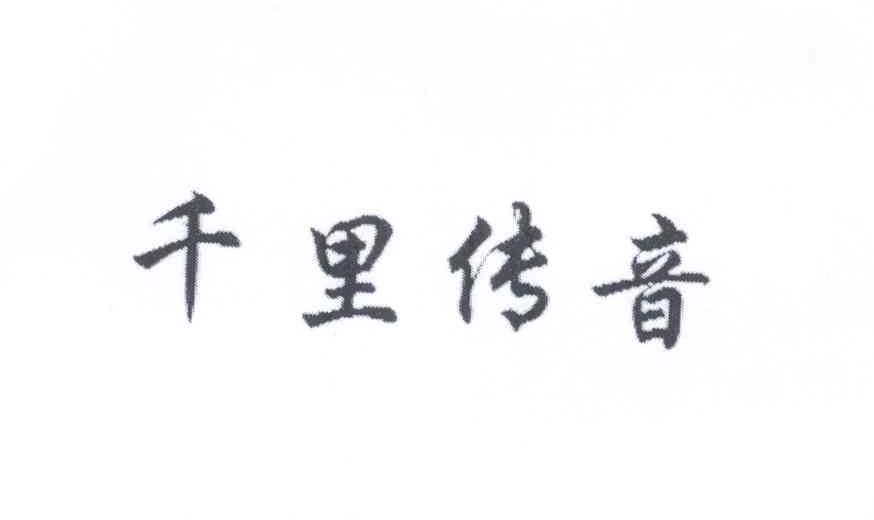 千里传音